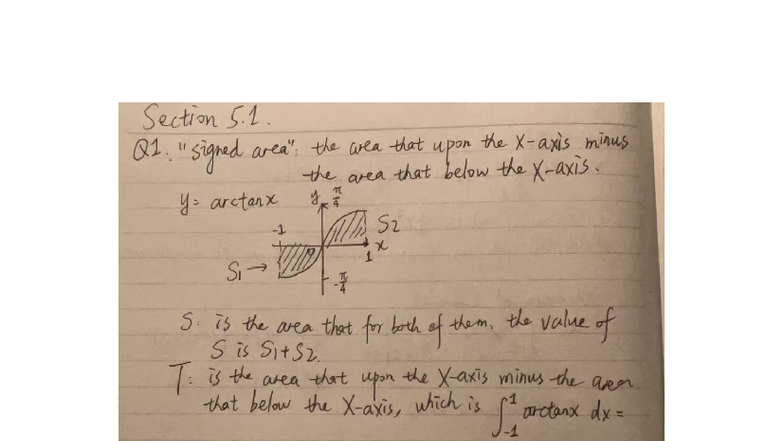 Section 5.1.
Q1. "signed area": the area that upon the X-axis minus
the area that below the X-axis.
y = arctanx
y π/4
-1
S2
x
1
S1 →
-π/4
S: is the area that for both of them. the value of
S is S1+S2.
T: is the area that upon the X-axis minus the area
that below the X-axis, which is ∫₋₁¹ arctanx dx =